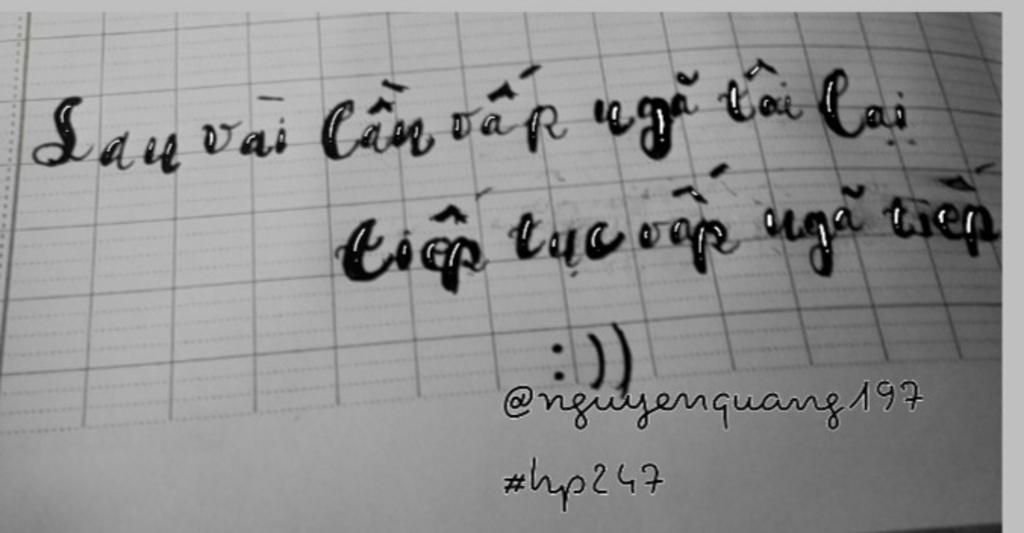 Sau vài lần vấp ngã tôi lại
tiếp tục vấp ngã tiếp
:))
@nguyenquang197
#hp247